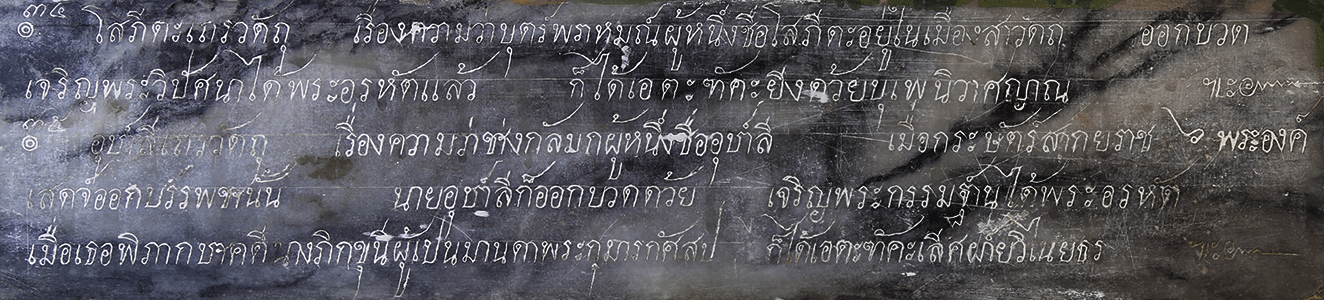 ๓๔ ๏ โสภีตะเถรวัดถุ เรื่องความว่าบุตร์พภหมณ์ผู้หนึ่งชื่อโสภีตะอยู่ในเมืองสาวัดถ ออกบวด
เจริญพระวิปัศนาได้พระอรหัตแล้ว ก็ได้เอตะฑัคะยิ่งด้วยบุเพนิวาศญาณ ฯะ
๓๕ ๏ อุบาลีเถรวัดถุ เรื่องความว่าช่างกัลบกผู้หนึ่งชื่ออุบาลี เมื่อกระษัตร์สากยราช ๖ พระองค์
เสดจ์ออกบรรพชชนั้น นายอุบาลีก็ออกบวดด้วย เจริญพระกรรมฐานได้พระอรหัต
เมื่อเธอพิภากษาคดีนางภิกขุนีผู้เปนมานดาพระกุมารกัศสป ก็ได้เอตะฑัคะเลีศฝ่ายวิไนยธร ฯะ